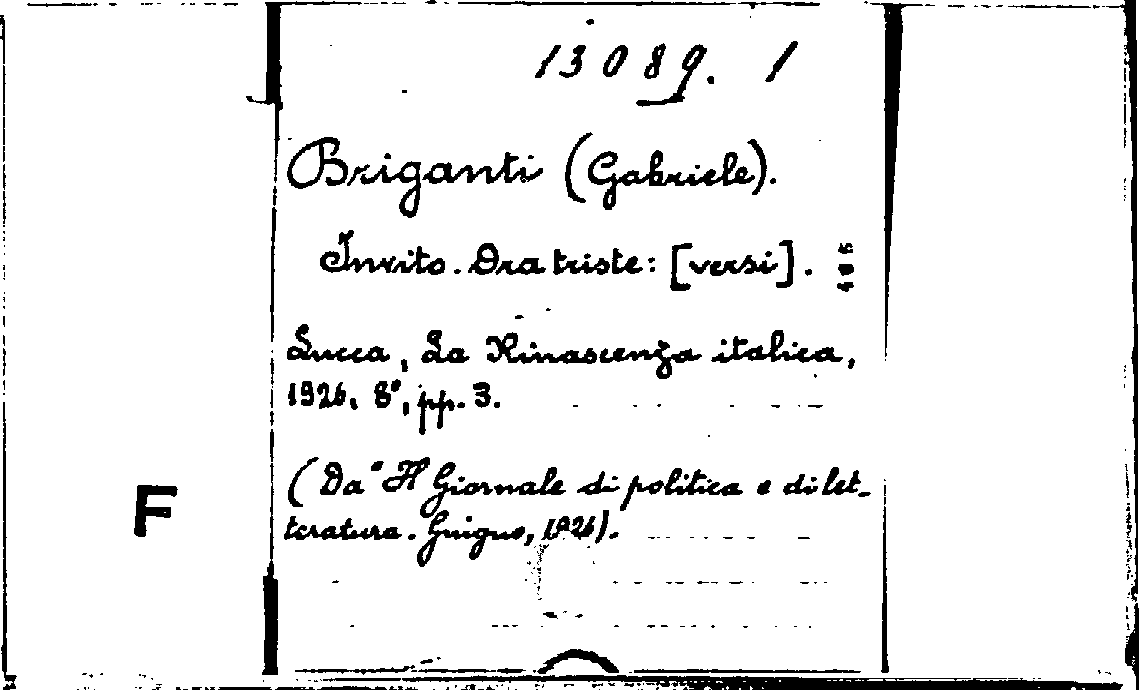 13089. 1
Briganti (Gabriele).
Invito. Ora triste: [versi].
Lucca, La Rinascenza italica,
1926. 8°, pp. 3.
(Da "Il Giornale di politica e di let-
teratura. Giugno, 1926).
F